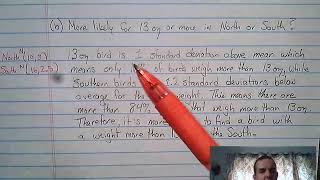 (a) More likely for 13 oz or more in North or South?
North N(10,3)
South N(16,2.5)
13 oz bird is 1 standard deviation above mean which
means only of birds weigh more than 13 oz, while
Southern birds 1.2 standard deviations below
average for the weight. This means there are
more than 84% that weigh more than 13 oz.
Therefore, it's more to find a bird with
a weight more than the South.